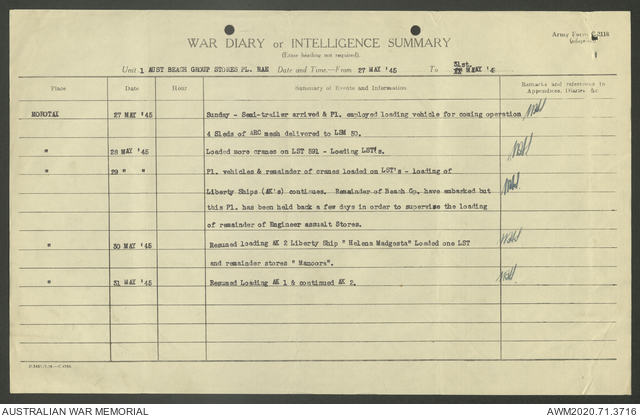 Army Form C.2118
WAR DIARY or INTELLIGENCE SUMMARY
(Erase heading not required).
Unit 1 AUST BEACH GROUP STORES PL. RAE Date and Time.—From 27 MAY '45 To 31st. MAY '45
Place Date Hour Summary of Events and Information Remarks and references to Appendices, Diaries &c
MOROTAI 27 MAY '45 Sunday - Semi-trailer arrived & Pl. employed loading vehicle for coming operation
4 Sleds of ARC mesh delivered to LSM 50.
" 28 MAY '45 Loaded more cranes on LST 591 - Loading LST's.
" 29 " " Pl. vehicles & remainder of cranes loaded on LST's - loading of
Liberty Ships (AK's) continues. Remainder of Beach Gp. have embarked but
this Pl. has been held back a few days in order to supervise the loading
of remainder of Engineer assualt Stores.
" 30 MAY '45 Resumed loading AK 2 Liberty Ship " Helena Madgesta" Loaded one LST
and remainder stores " Manoora".
" 31 MAY '45 Resumed Loading AK 1 & continued AK 2.
AUSTRALIAN WAR MEMORIAL AWM2020.71.3716